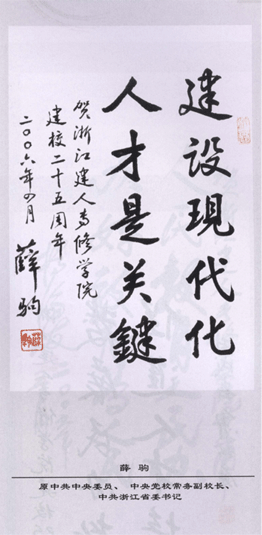 建设現代化
人才是关鍵
贺浙江建人专修学院
建校二十五周年
二〇〇六年四月
薛驹
薛驹
原中共中央委员、中央党校常务副校长、
中共浙江省委书记